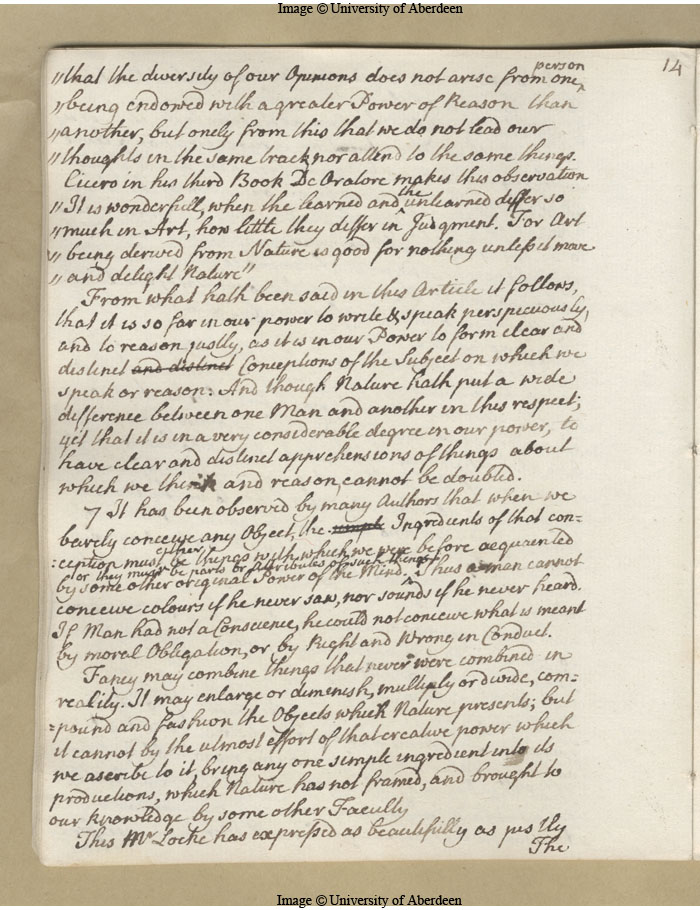 Image © University of Aberdeen
14
person
"that the diversity of our Opinions does not arise from one ^
"being endowed with a greater Power of Reason than
"another, but onely from this that we do not lead our
"thoughts in the same track nor attend to the same things.
Cicero in his third Book De Oratore makes this observation
the
"It is wonderfull, when the learned and ^ unlearned differ so
"much in Art, how little they differ in Judgment. For Art
"being derived from Nature is good for nothing unless it move
"and delight Nature"
From what hath been said in this Article it follows,
that it is so far in our power to write & speak perspicuously,
and to reason justly, as it is in our Power to form clear and
distinct and distinct Conceptions of the Subject on which we
speak or reason: And though Nature hath put a wide
difference between one Man and another in this respect;
yet that it is in a very considerable degree in our power, to
have clear and distinct apprehensions of things about
which we think and reason, cannot be doubted.
7 It has been observed by many Authors that when we
barely conceive any Object, the simple Ingredients of that con=
either
:ception must be things with which we were before acquainted
or they must be parts or attributes of such things
by some other original Power of the Mind. ^ Thus a man cannot
conceive colours if he never saw, nor sounds if he never heard.
If Man had not a Conscience, he could not conceive what is meant
by moral Obligation, or by Right and Wrong in Conduct.
Fancy may combine things that never were combined in
reality. It may enlarge or diminish, multiply or divide, com=
=pound and fashion the Objects which Nature presents; but
it cannot by the utmost effort of that creative power which
we ascribe to it, bring any one simple ingredient into its
productions, which Nature has not framed, and brought to
our knowledge by some other Faculty
This Mr Locke has expressed as beautifully as justly
The
Image © University of Aberdeen